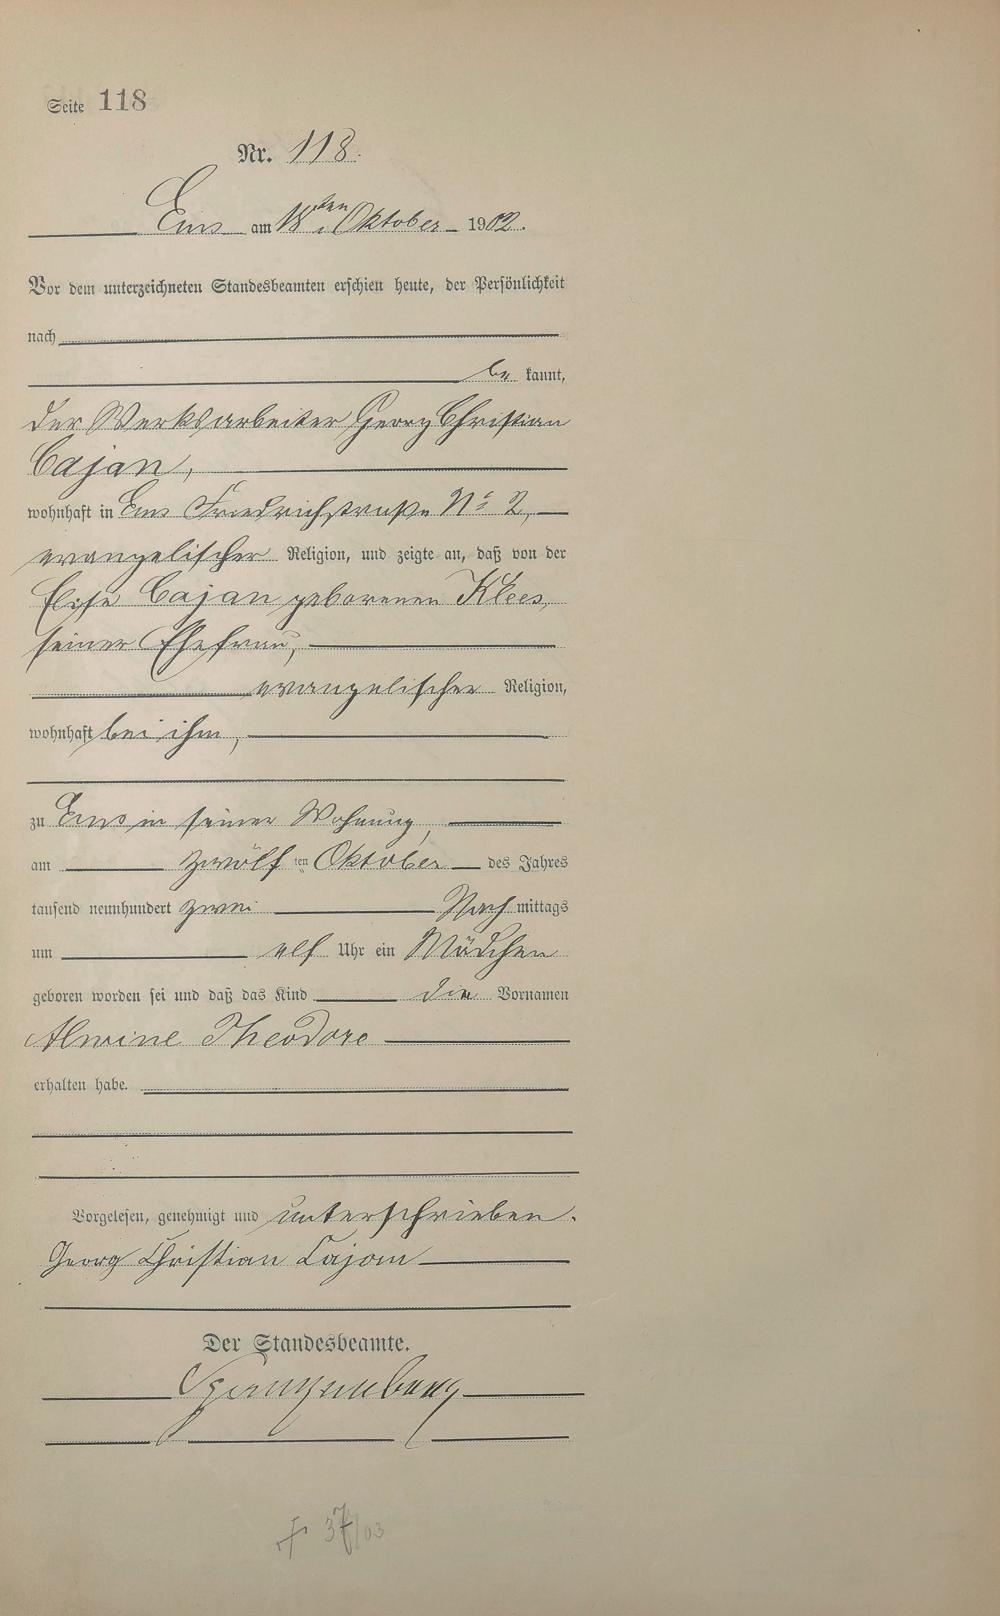 Seite 118
Nr. 118.
Ems am 18ten Oktober 1902.
Vor dem unterzeichneten Standesbeamten erschien heute, der Persönlichkeit
nach
be kannt,
der Werksarbeiter Georg Christian
Cajan,
wohnhaft in Ems Friedrichstraße No 2,
evangelischer Religion, und zeigte an, daß von der
Elise Cajan geborenen Klees,
seiner Ehefrau,
evangelischer Religion,
wohnhaft bei ihm,
zu Ems in seiner Wohnung,
am zwölf ten Oktober des Jahres
tausend neunhundert zwei Nach mittags
um elf Uhr ein Mädchen
geboren worden sei und daß das Kind die Vornamen
Alwine Theodore
erhalten habe.
Vorgelesen, genehmigt und unterschrieben.
Georg Christian Cajan
Der Standesbeamte.
† 37/03